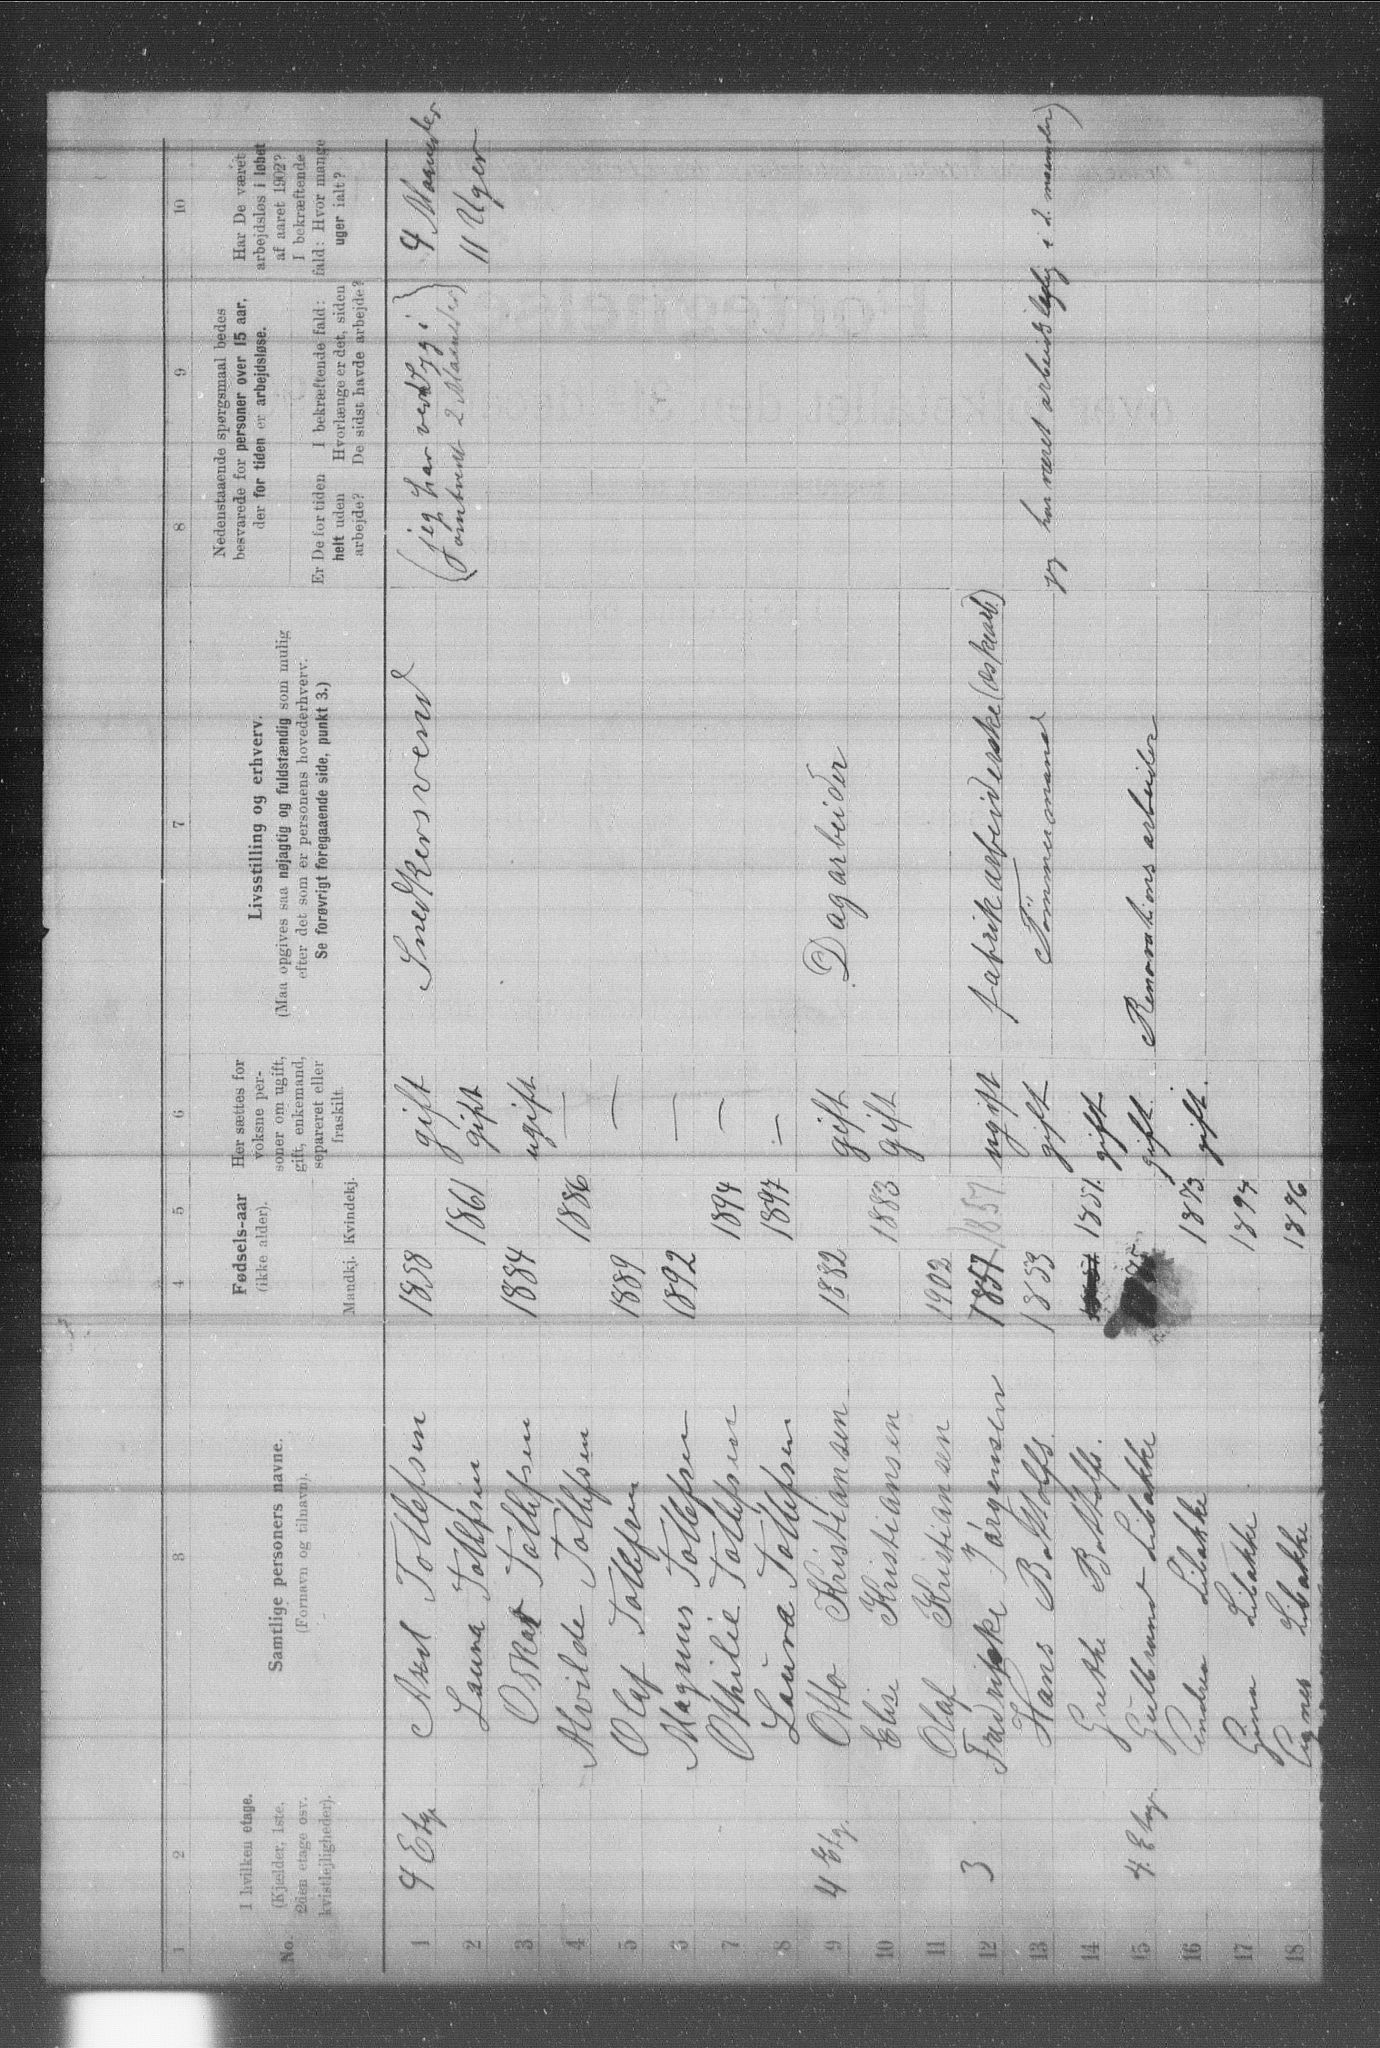 1 2 3 4 5 6 7 8 9 10
No.
I hvilken etage.
(Kjælder, 1ste,
2den etage osv.
kvistlejligheder).
Samtlige personers navne.
(Fornavn og tilnavn).
Fødsels-aar
(ikke alder).
Mandkj. Kvindekj.
Her sættes for
voksne per-
soner om ugift,
gift, enkemand,
separeret eller
fraskilt.
Livsstilling og erhverv.
(Maa opgives saa nøjagtig og fuldstændig som mulig
efter det som er personens hovederhverv.
Se forøvrigt foregaaende side, punkt 3.)
Nedenstaaende spørgsmaal bedes
besvarede for personer over 15 aar,
der for tiden er arbejdsløse.
Er De for tiden
helt uden
arbejde?
I bekræftende fald:
Hvorlænge er det, siden
De sidst havde arbejde?
Har De været
arbejdsløs i løbet
af aaret 1902?
I bekræftende
fald: Hvor mange
uger ialt?
1 4 Etg. Axel Tollefsen 1858 gift Snedkersvend (jeg har været syg i) 4 Maaneder
2 Laura Tollefsen 1861 gift (omtrent 2 Maaneder) 11 Uger
3 Oskar Tollefsen 1884 ugift
4 Alvilde Tollefsen 1886 —
5 Olaf Tollefsen 1889 —
6 Magnus Tollefsen 1892 —
7 Othilie Tollefsen 1894 —
8 Laura Tollefsen 1897 —
9 4 Etg. Otto Kristiansen 1882 gift Dagarbeider
10 Elise Kristiansen 1883 gift
11 Olaf Kristiansen 1902
12 3 Fredrikke Jørgensen 1857 1857 ugift fabrikarbeiderske (æskearb.)
13 Hans Bottolfs. 1853 gift Tømmermand jeg har været arbeidsledig i 2 maaneder)
14 Grethe Bottolfs. 1851. gift
15 4. Etag. Gulbrand Libakke gift. Renovationsarbeider
16 Andrea Libakke 1873 gift.
17 Gina Libakke 1894
18 Agnes Libakke 1896